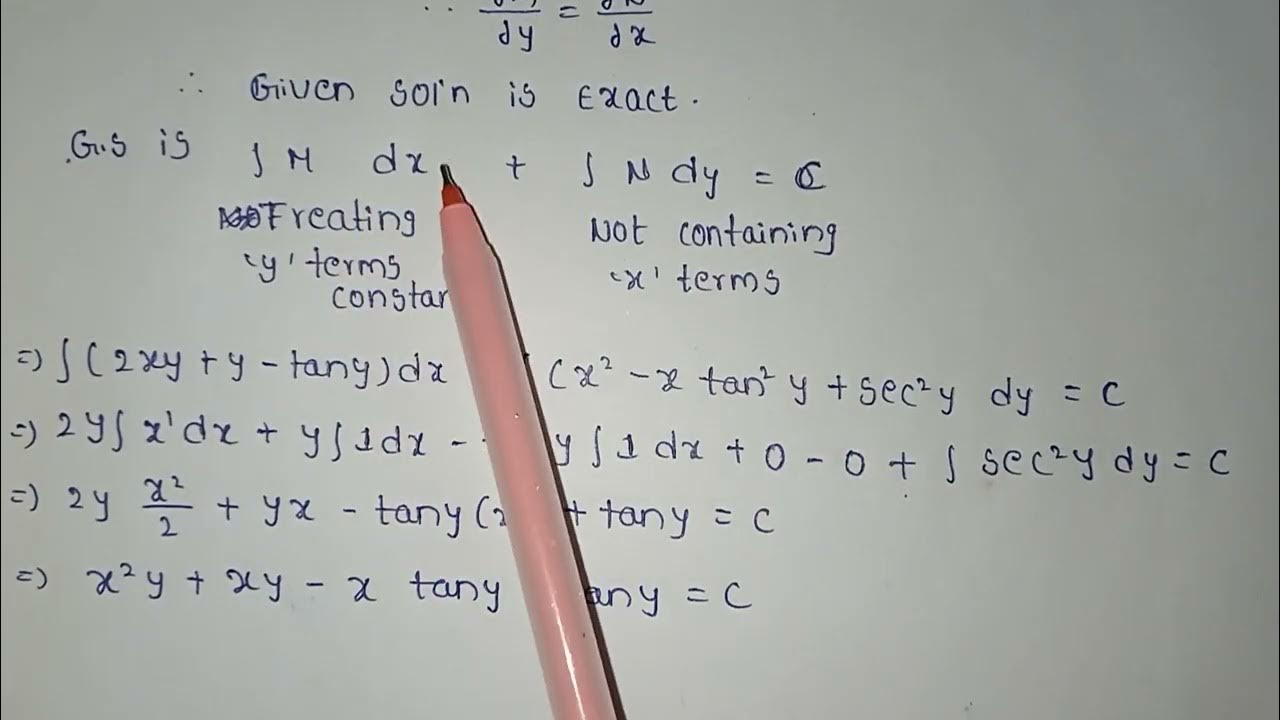 ∴ Given sol'n is Exact.
G.S is ∫ M dx + ∫ N dy = C
Treating Not containing
'y' terms 'x' terms
⇒ ∫ (2xy + y - tany) dx (x² - x tan² y + sec² y dy = C
⇒ 2y ∫ x¹ dx + y ∫ 1 dx - y ∫ 1 dx + 0 - 0 + ∫ sec² y dy = C
⇒ 2y x²/2 + yx - tany ( + tany = C
⇒ x² y + xy - x tany any = C